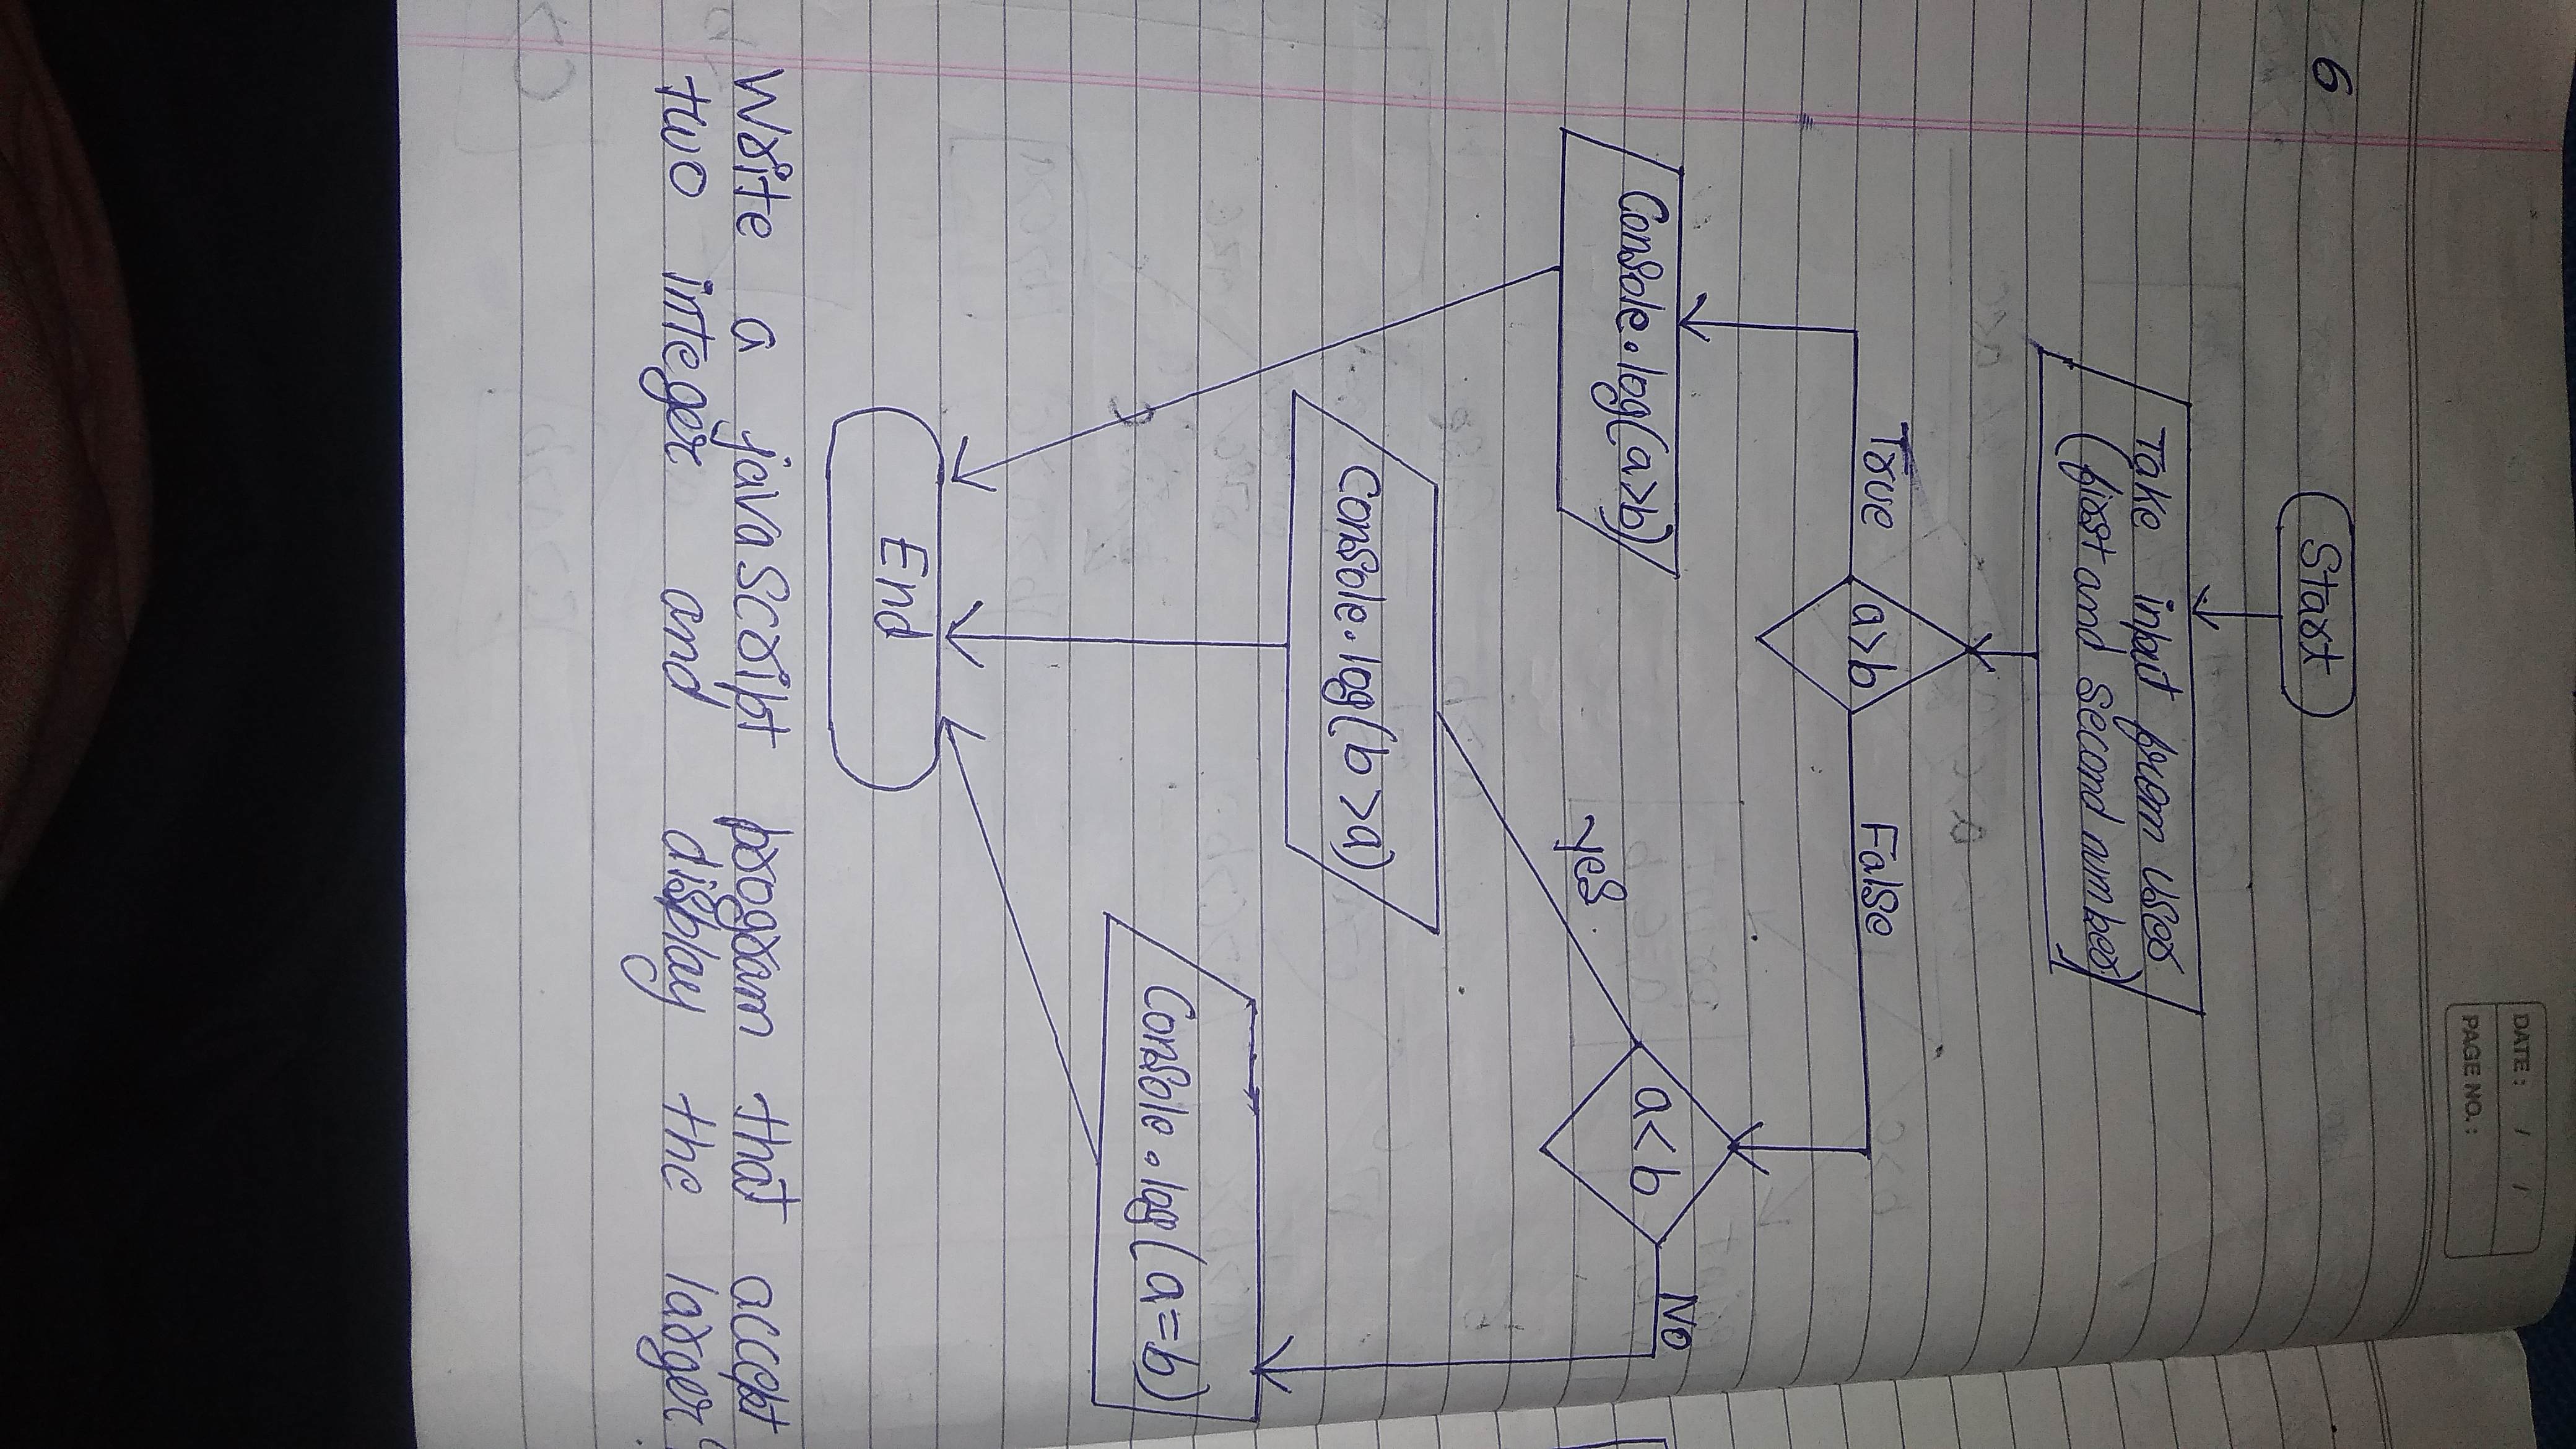 DATE: / /
PAGE NO.:
6
Start
Take input from user
(first and second number)
a>b
True
False
Console.log(a>b)
a<b
Yes
No
Console.log(b>a)
Console.log(a=b)
End
Write a javaScript program that accept
two integer and display the larger